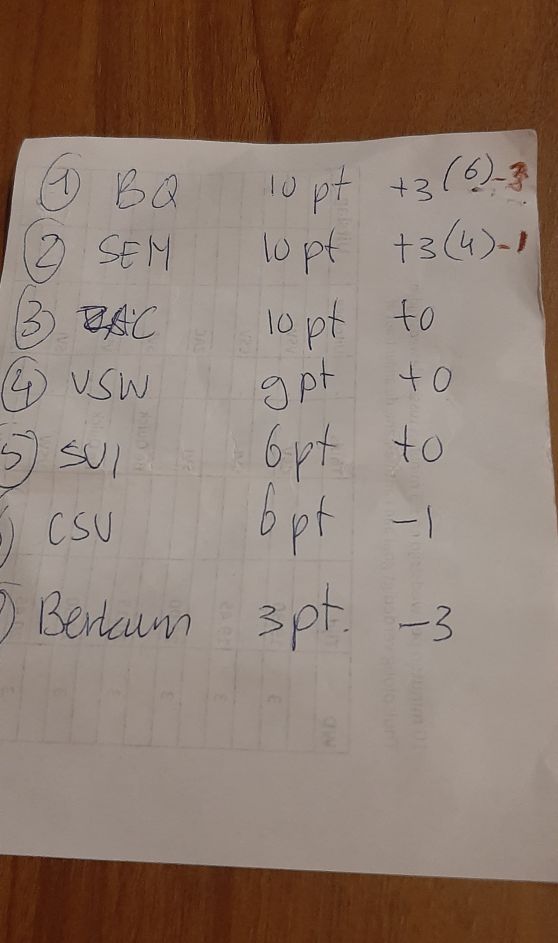 ① BQ 10 pt +3 (6) -3
② SEM 10 pt +3 (4) -1
③ 10 pt +0
④ VSW 9 pt +0
5) SVI 6 pt +0
) CSV 6 pt -1
) Berkum 3 pt. -3